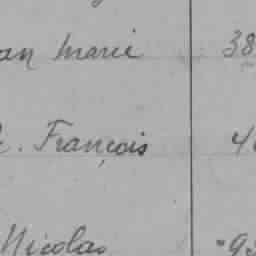 an Marie 38
. François 4
Nicolas